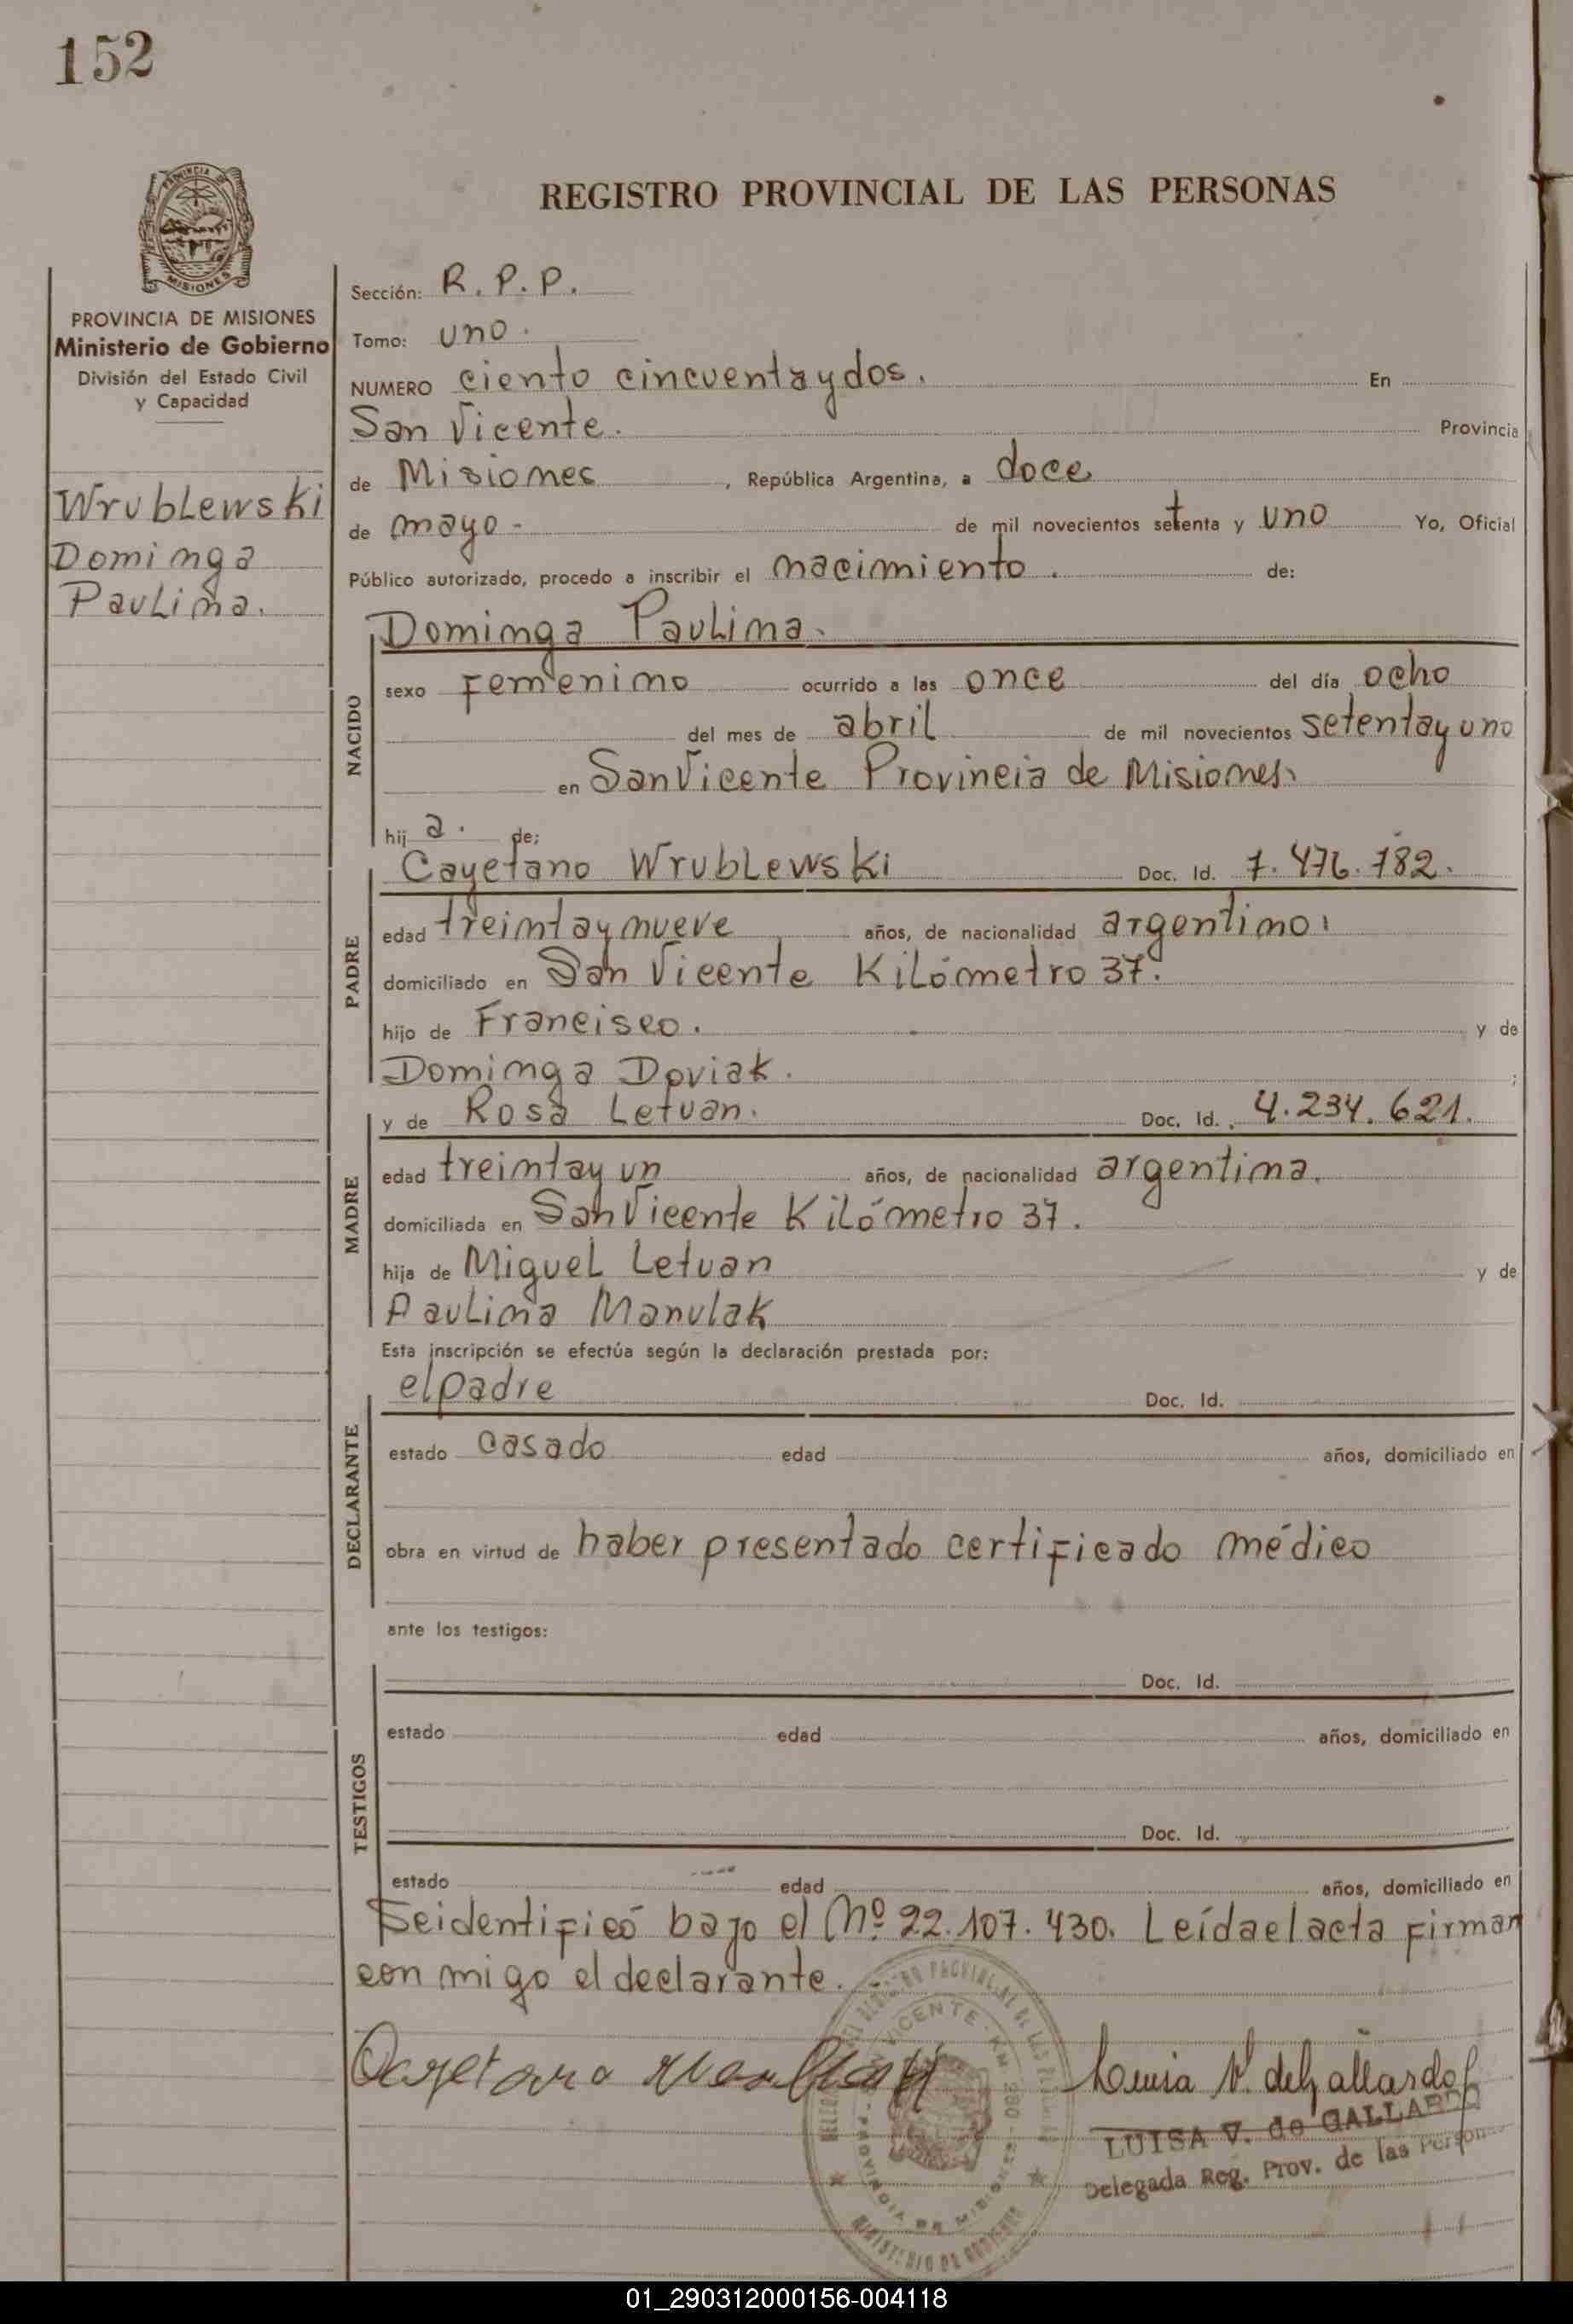 152
PROVINCIA DE
MISIONES
REGISTRO PROVINCIAL DE LAS PERSONAS
PROVINCIA DE MISIONES
Ministerio de Gobierno
División del Estado Civil
y Capacidad
Wrublewski
Dominga
Paulina.
Sección: R. P. P.
Tomo: uno.
NUMERO ciento cincuenta y dos. En
San Vicente. Provincia
de Misiones, República Argentina, a doce
de mayo - de mil novecientos setenta y uno Yo, Oficial
Público autorizado, procedo a inscribir el nacimiento. de:
NACIDO
Dominga Paulina.
sexo Femenino ocurrido a las once del día ocho
del mes de abril de mil novecientos setenta y uno
en San Vicente Provincia de Misiones.
hij a. de;
PADRE
Cayetano Wrublewski Doc. Id. 7.476.782.
edad treinta y nueve años, de nacionalidad argentino.
domiciliado en San Vicente Kilómetro 37.
hijo de Francisco. y de
Dominga Doviak. ;
MADRE
y de Rosa Letuan. Doc. Id. 4.234.621.
edad treinta y un años, de nacionalidad argentina.
domiciliada en San Vicente Kilómetro 37.
hija de Miguel Letuan y de
Paulina Manulak
Esta inscripción se efectúa según la declaración prestada por:
DECLARANTE
el padre Doc. Id.
estado casado edad años, domiciliado en
obra en virtud de haber presentado certificado médico
ante los testigos:
TESTIGOS
Doc. Id.
estado edad años, domiciliado en
Doc. Id.
estado edad años, domiciliado en
Se identificó bajo el Nº 22.107.430. Leída el acta firman
con migo el declarante.
Cayetano
Luisa V. de Gallardo
LUISA V. de GALLARDO
Delegada Reg. Prov. de las Person
REGISTRO PROVINCIAL DE LAS
SAN VICENTE - KM
PROVINCIA DE MISIONES
MINISTERIO DE GOBIERNO
01_290312000156-004118